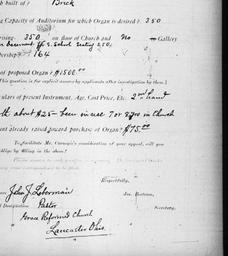 built of? Brick
ng Capacity of Auditorium for which Organ is desired? 350
prising 350 on floor of Church and No Gallery
Basement for S. School seating 250.
bership? 164
of proposed Organ? $1500.00
This question is for explicit answer by applicants after investigation by them.
ulars of present Instrument, Age, Cost Price, Etc. 2nd hand
about $25- been in use 7 or 8 yrs in Church
unt already raised toward purchase of Organ? $75.00
To facilitate Mr. Carnegie's consideration of your appeal, will you
oblige by filling in the above?
Respectfully,
Jas. Bertram,
Secretary.
John J. Leberman
Designation Pastor
Grace Reformed Church
Lancaster Ohio.